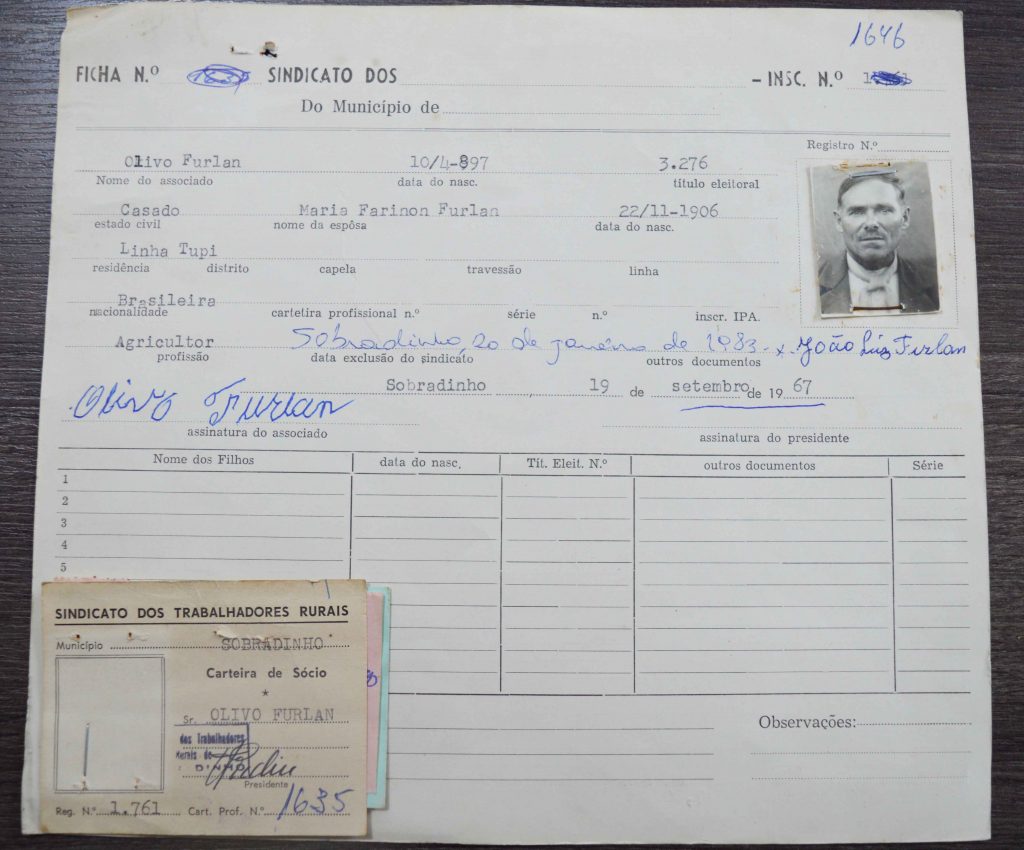 1646
FICHA N.º SINDICATO DOS - INSC. N.º
Do Município de
Registro N.º
Olivo Furlan 10/4-897 3.276
Nome do associado data do nasc. título eleitoral
Casado Maria Farinon Furlan 22/11-1906
estado civil nome da espôsa data do nasc.
Linha Tupi
residência distrito capela travessão linha
Brasileira
nacionalidade cartetira profissional n.º série n.º inscr. IPA.
Agricultor Sobradinho, 20 de janeiro de 1983 - x João Luiz Furlan
profissão data exclusão do sindicato outros documentos
Sobradinho 19 de setembro de 1967
Olivo Furlan
assinatura do associado assinatura do presidente
Nome dos Filhos data do nasc. Tit. Eleit. N.º outros documentos Série
1
2
3
4
5
SINDICATO DOS TRABALHADORES RURAIS
Município SOBRADINHO
Carteira de Sócio
*
Sr. OLIVO FURLAN
dos Trabalhadores
Rurais de
DINHO
Presidente
Reg. N.º 1.761 Cart. Prof. N.º 1635
Observações: